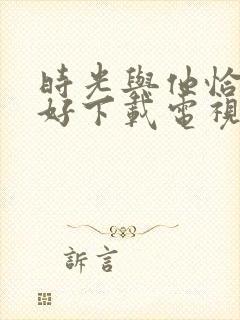 時光與他恰
好下載電視
訴言